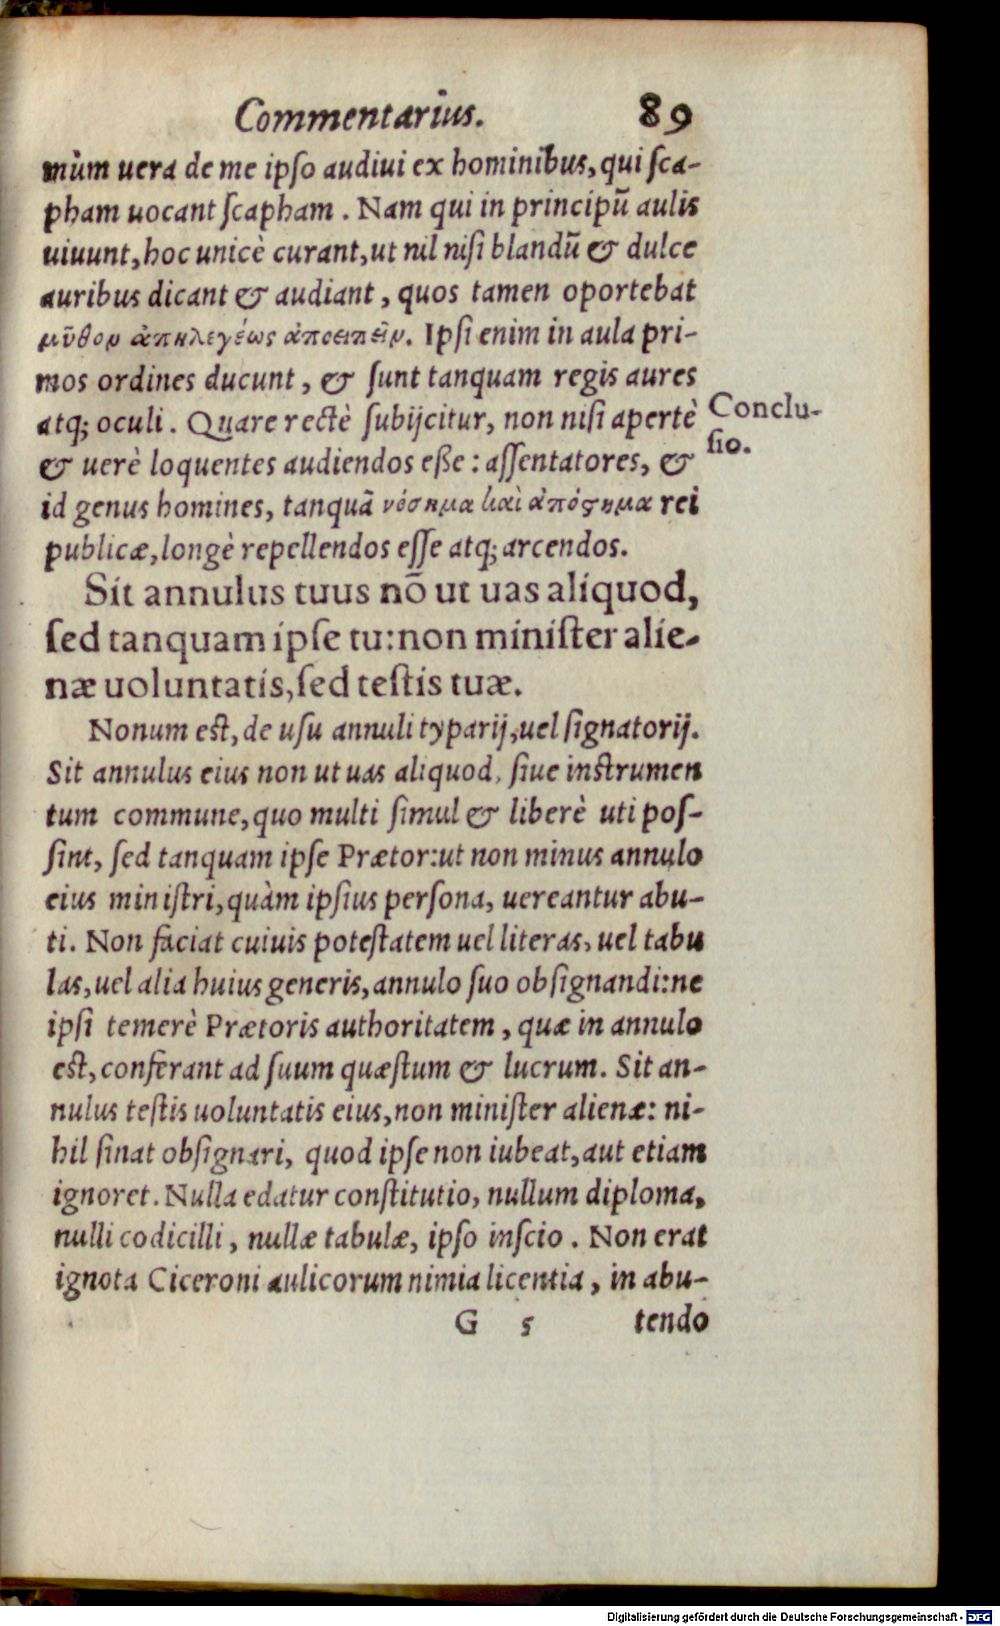 Commentarius. 89
mùm uera de me ipſo audiui ex hominibus, qui ſca-
pham uocant ſcapham. Nam qui in principũ aulis
uiuunt, hoc unicè curant, ut nil niſi blandũ & dulce
auribus dicant & audiant, quos tamen oportebat
μῦθον ἀπηλεγέως ἀποειπεῖν. Ipſi enim in aula pri-
mos ordines ducunt, & ſunt tanquam regis aures
atq; oculi. Quare rectè ſubijcitur, non niſi apertè
Conclu-
ſio.
& uerè loquentes audiendos eße: aſſentatores, &
id genus homines, tanquã νόσημα καὶ ἀπόςημα rei
publicæ, longè repellendos eſſe atq; arcendos.
Sit annulus tuus nõ ut uas aliquod,
ſed tanquam ipſe tu: non miniſter alie-
næ uoluntatis, ſed teſtis tuæ.
Nonum eſt, de uſu annuli typarij, uel ſignatorij.
Sit annulus eius non ut uas aliquod, ſiue inſtrumen
tum commune, quo multi ſimul & liberè uti poſ-
ſint, ſed tanquam ipſe Prætor: ut non minus annulo
eius miniſtri, quàm ipſius perſona, uereantur abu-
ti. Non faciat cuiuis poteſtatem uel literas, uel tabu
las, uel alia huius generis, annulo ſuo obſignandi: ne
ipſi temerè Prætoris authoritatem, quæ in annulo
eſt, conferant ad ſuum quæſtum & lucrum. Sit an-
nulus teſtis uoluntatis eius, non miniſter alienæ: ni-
hil ſinat obſignari, quod ipſe non iubeat, aut etiam
ignoret. Nulla edatur conſtitutio, nullum diploma,
nulli codicilli, nullæ tabulæ, ipſo inſcio. Non erat
ignota Ciceroni aulicorum nimia licentia, in abu-
G 5 tendo
Digitalisierung gefördert durch die Deutsche Forschungsgemeinschaft - DFG